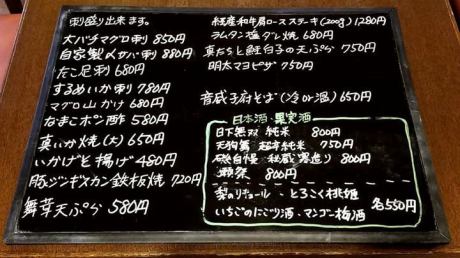 刺盛り出来ます。
大バチマグロ刺 850円
自家製〆サバ刺 880円
たこ足刺 680円
するめいか刺 780円
マグロ山かけ 680円
なまこポン酢 580円
真いか焼(大) 650円
いかげそ揚げ 480円
豚ジンギスカン鉄板焼 720円
舞茸天ぷら 580円
経産和牛肩ロースステーキ(200g) 1280円
ラムタン塩グレ焼 680円
真だちと鮭白子の天ぷら 750円
明太マヨピザ 750円
音威子府そば(冷or温) 650円
日本酒・果実酒
日下無双 純米 800円
天狗舞 超辛純米 750円
磯自慢 秘蔵寒造り 800円
獺祭 800円
梨のリキュール・とろこく桃姫
いちごのにごり酒・マンゴー梅酒 各550円